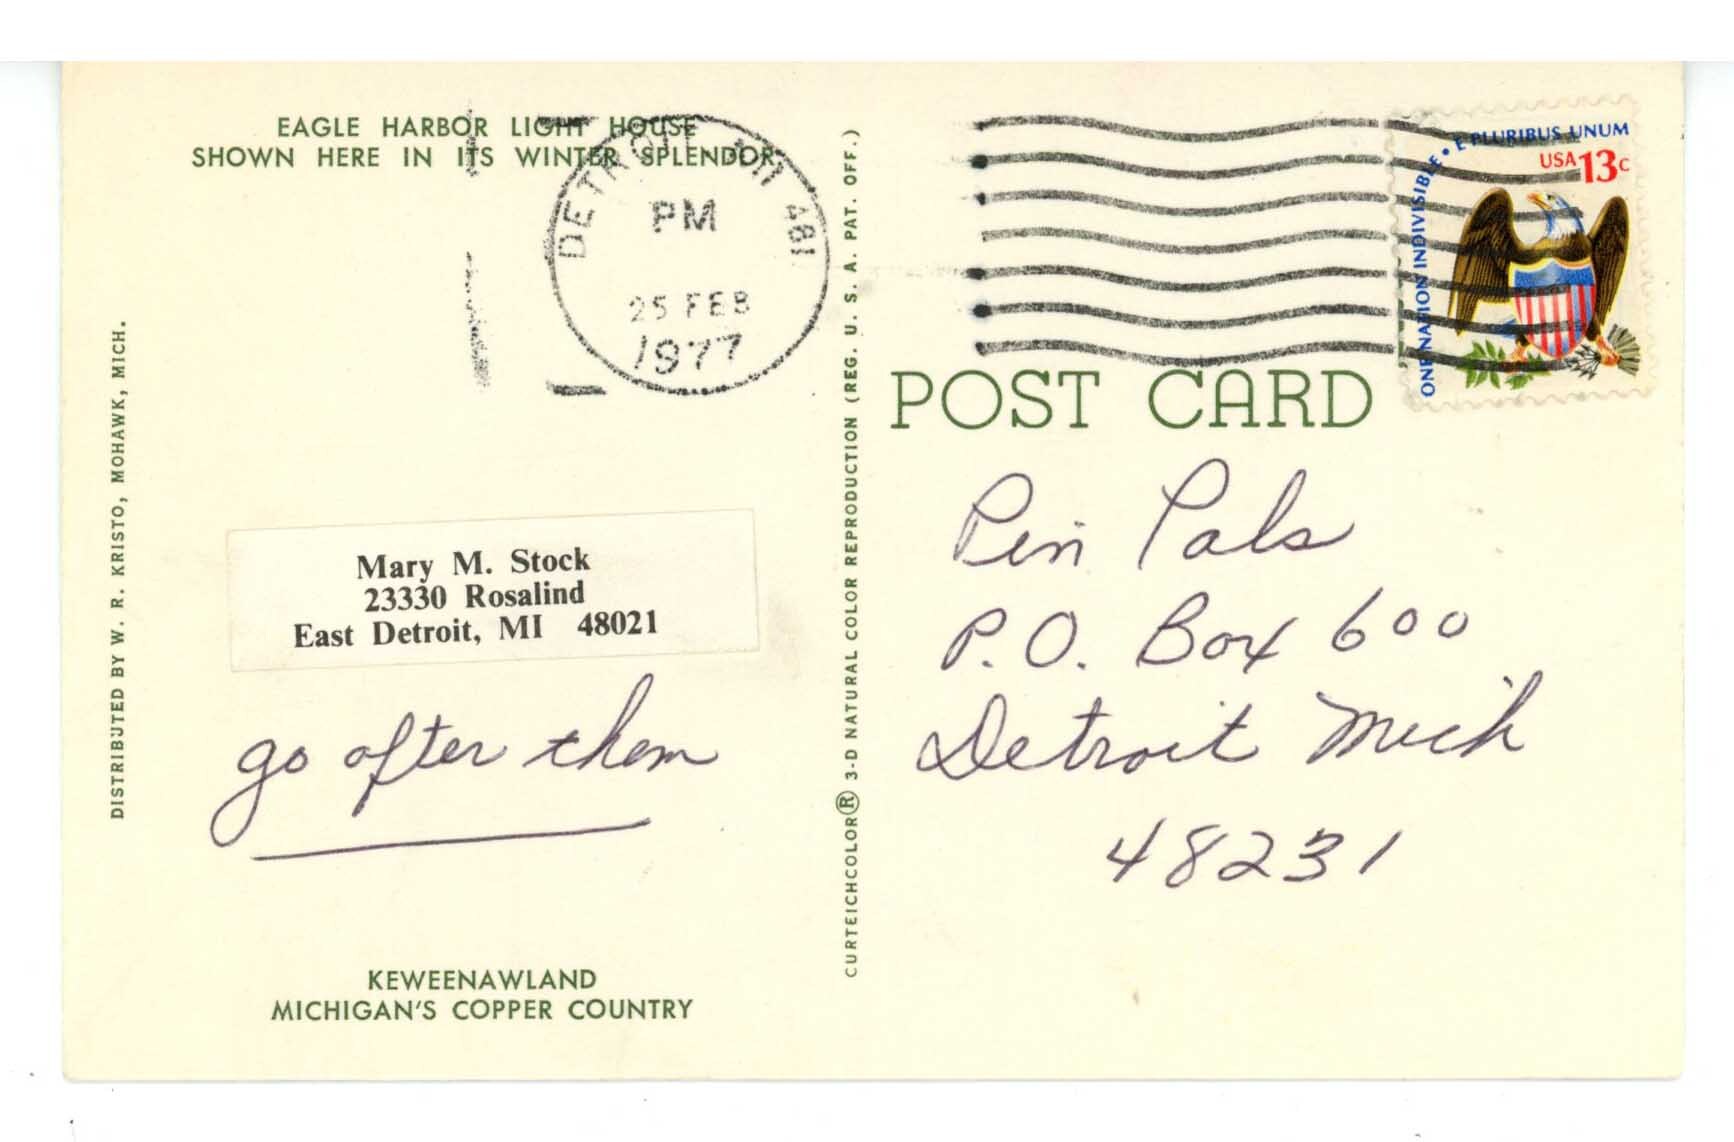 EAGLE HARBOR LIGHT HOUSE
SHOWN HERE IN ITS WINTER SPLENDOR.
DETROIT, MI 481
PM
25 FEB
1977
DISTRIBUTED BY W. R. KRISTO, MOHAWK, MICH.
Mary M. Stock
23330 Rosalind
East Detroit, MI 48021
go after them
KEWEENAWLAND
MICHIGAN'S COPPER COUNTRY
CURTEICHCOLOR® 3-D NATURAL COLOR REPRODUCTION (REG. U. S. A. PAT. OFF.)
ONE NATION INDIVISIBLE • E PLURIBUS UNUM
USA 13c
POST CARD
Pen Pals
P.O. Box 600
Detroit Mich
48231